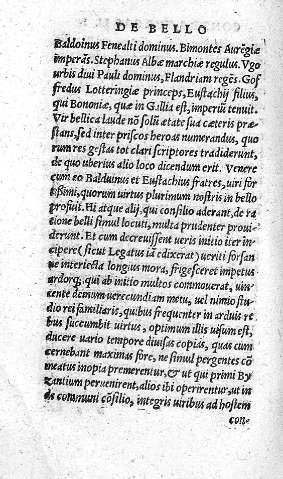 DE BELLO
Baldoinus Fenealti dominus. Bimontes Aurēgiæ
imperās. Stephanus Albæ marchiæ regulus. Vgo
urbis diui Pauli dominus, Flandriam regēs. Gof
fredus Lotteringiæ princeps, Eustachij filius,
qui Bononiæ, quæ in Gallia est, imperiū tenuit.
Vir bellica laude nō solū ætate sua cæteris præ-
stans, sed inter priscos heroas numerandus, quo
rum res gestas tot clari scriptores tradiderunt,
de quo uberius alio loco dicendum erit. Venere
cum eo Balduinus et Eustachius fratres, uiri for
tissimi, quorum uirtus plurimum nostris in bello
profuit. Hi atque alij, qui consilio aderant, de ra
tione belli simul locuti, multa prudenter proui-
derunt. Et cum decreuissent ueris initio iter in-
cipere (sicut Legatus iā edixerat) ueriti forsan
ne interiecta longius mora, frigesceret impetus
ardorq; qui ab initio multos commouerat, uin-
cente demum uerecundiam metu, uel nimio stu-
dio rei familiaris, quibus frequenter in arduis re
bus succumbit uirtus, optimum illis uisum est,
ducere uario tempore diuisas copias, quas cum
cernebant maximas fore, ne simul pergentes cō
meatus inopia premerentur, & ut qui primi By
zantium peruenirent, alios ibi operirentur, ut in
de communi cōsilio, integris uiribus ad hostem
con-